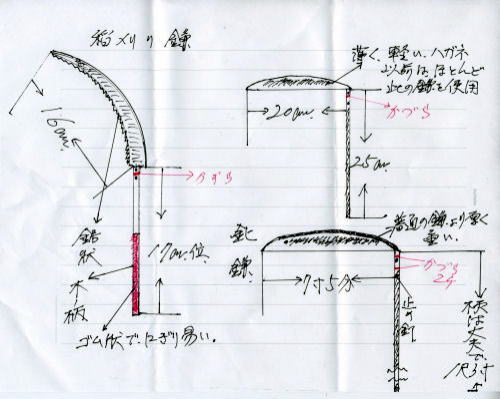 稲刈り鎌
16cm
かずら
鋸状
木板
17cm位
ゴム状でにぎり易い。
薄く、軽い、ハガネ
以前は、ほとんど
此の鎌を使用
20cm
かづら
25cm
鉈鎌
普通の鎌より厚く
重い。
7寸5分
かづら
2ケ
止め釘
柄は丈夫で
1尺3寸